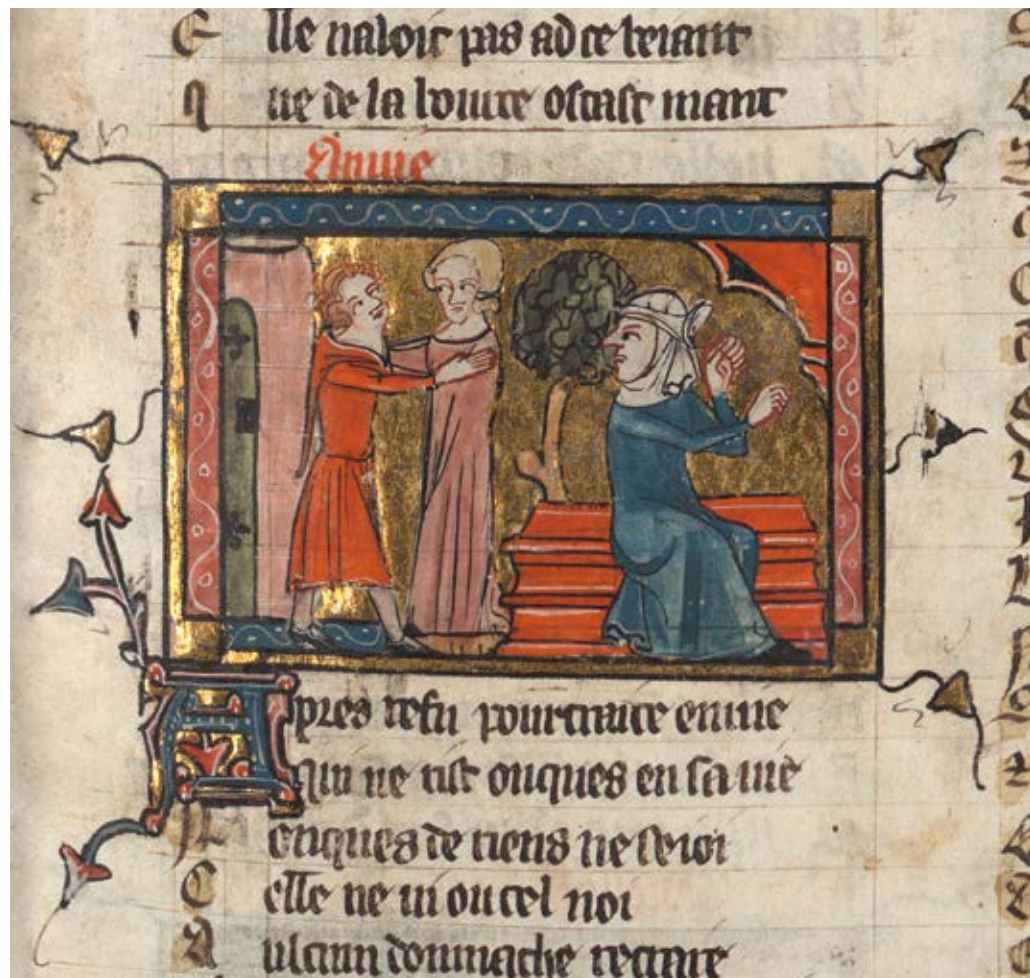 E lle naloit pas ad ce beiant
Q ue de la bourse ostast niant
Enuie
Apres refu pourtraite enuie
Qui ne rist onques en sa uie
N enques de riens ne seioi
C elle ne ui ou cel noi
A ulcun doumache retraire